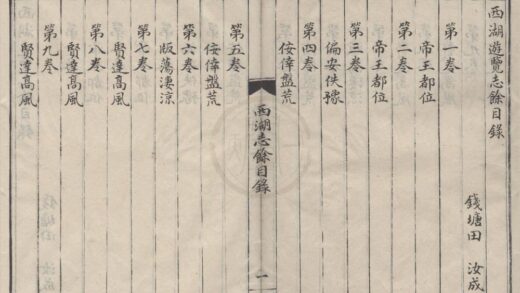 西湖遊覽志餘目錄
錢塘田 汝成
第一卷
帝王都位
第二卷
帝王都位
第三卷
偏安佚豫
第四卷
佞倖盤荒
西湖志餘目錄
一
第五卷
佞倖盤荒
第六卷
版蕩淒涼
第七卷
賢達高風
第八卷
賢達高風
第九卷